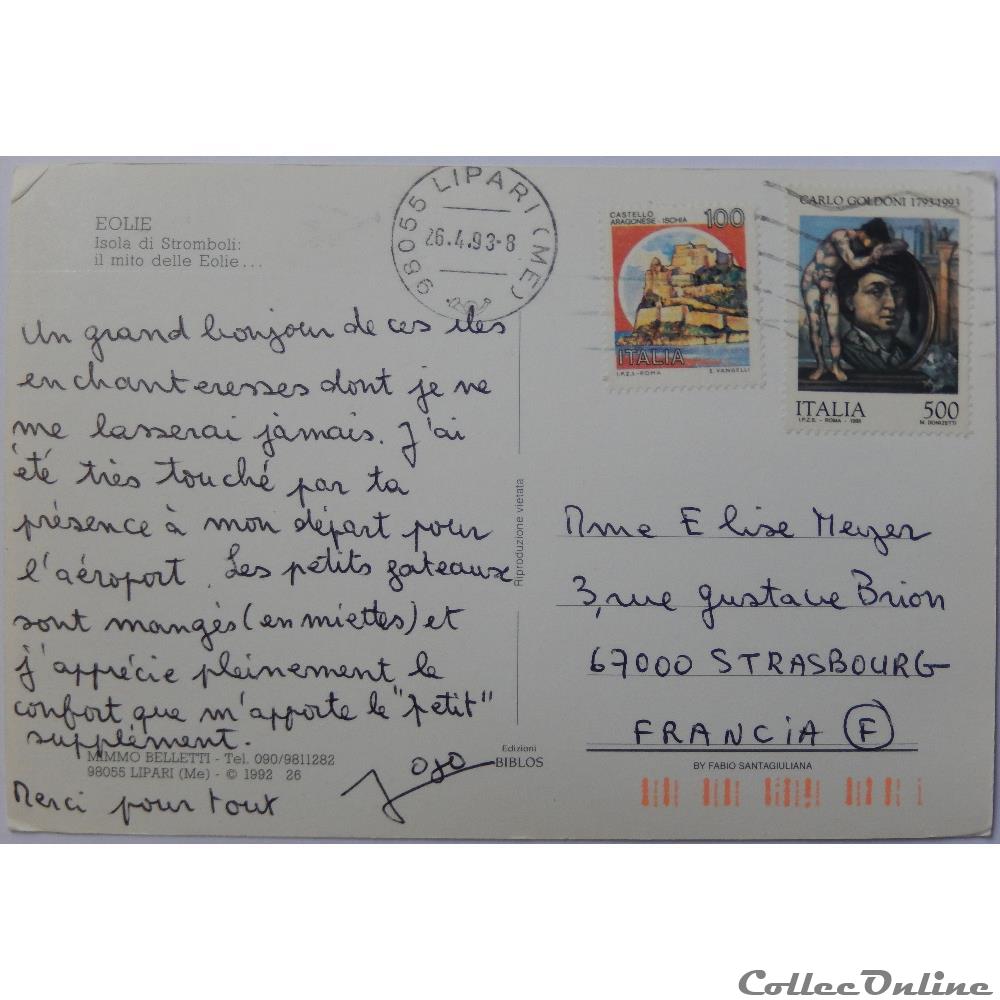 EOLIE
Isola di Stromboli:
il mito delle Eolie...
98055 LIPARI (ME)
26.4.93-8
CASTELLO
ARAGONESE - ISCHIA
100
ITALIA
I.P.Z.S. - ROMA
E. VANGELLI
CARLO GOLDONI 1793-1993
ITALIA
500
I.P.Z.S. - ROMA - 1993
M. DONIZETTI
Un grand bonjour de ces iles
enchanteresses dont je ne
me lasserai jamais. J'ai
été très touché par ta
présence à mon départ pour
l'aéroport. Les petits gateaux
sont mangés (en miettes) et
j'apprécie pleinement le
confort que m'apporte le "petit"
supplément.
MIMMO BELLETTI - Tel. 090/9811282
98055 LIPARI (Me) - © 1992 26
Merci pour tout
Jojo
Riproduzione vietata
Edizioni
BIBLOS
Mme Elise Meyer
3, rue Gustave Brion
67000 STRASBOURG
FRANCIA (F)
BY FABIO SANTAGIULIANA
CollecOnline